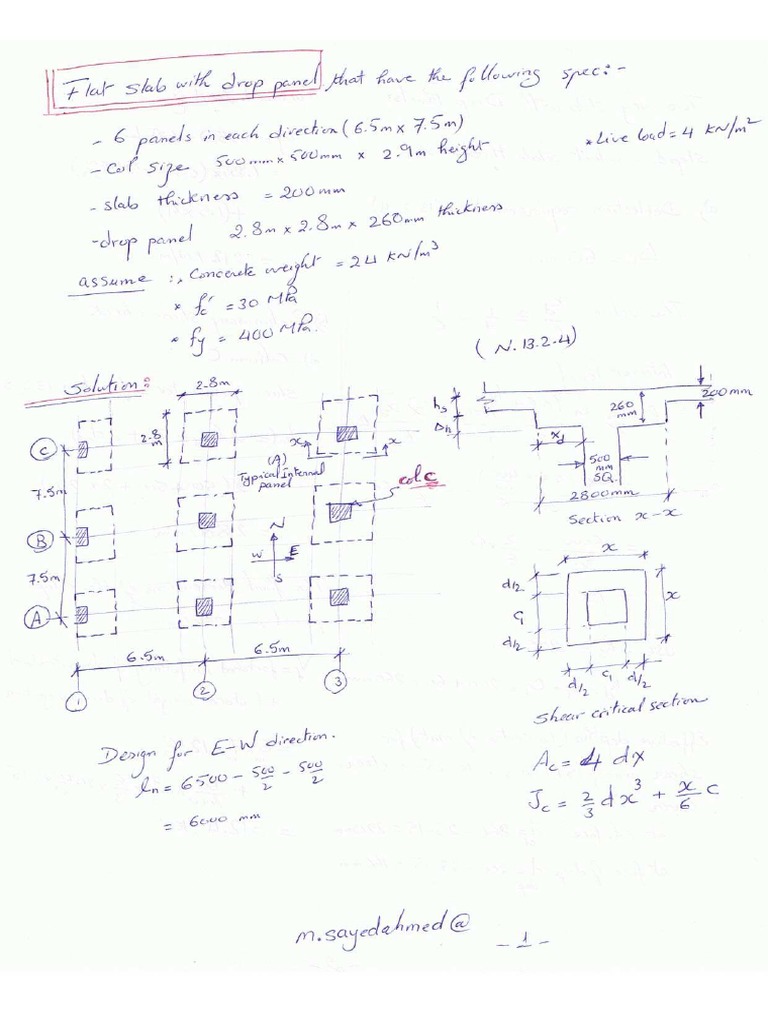 Flat slab with drop panel that have the following spec:-
- 6 panels in each direction (6.5m x 7.5m)
* Live load = 4 KN/m²
- Col size 500mm x 500mm x 2.9m height
- slab thickness = 200mm
- drop panel 2.8m x 2.8m x 260mm thickness
assume :, Concrete weight = 24 KN/m³
* f'c = 30 MPa
* fy = 400 MPa.
(N. 13.2.4)
Solution:
2.8m
2.8m
C
B
A
7.5m
7.5m
(A)
Typical Internal
panel
x x
col C
N
W E
S
6.5m 6.5m
1 2 3
hs
Δh
xd
260
mm
200mm
500
mm
SQ.
2800mm
Section x-x
x
d/2
C1
d/2
x
d/2 C1 d/2
Shear critical section
Ac = 4 dx
Jc = 2/3 dx³ + x/6 C
Design for E-W direction.
ln = 6500 - 500/2 - 500/2
= 6000 mm
m.sayedahmed@
- 1 -